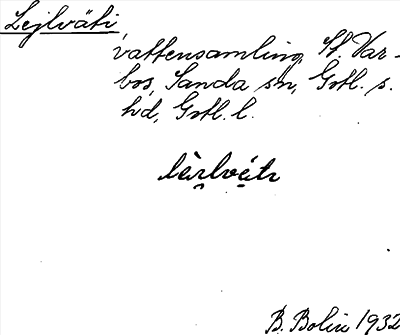 Lejlväti,
vattensamling, St. Var-
bos, Sanda sn, Gotl. s.
hd, Gotl. l.
B. Bolin 1932